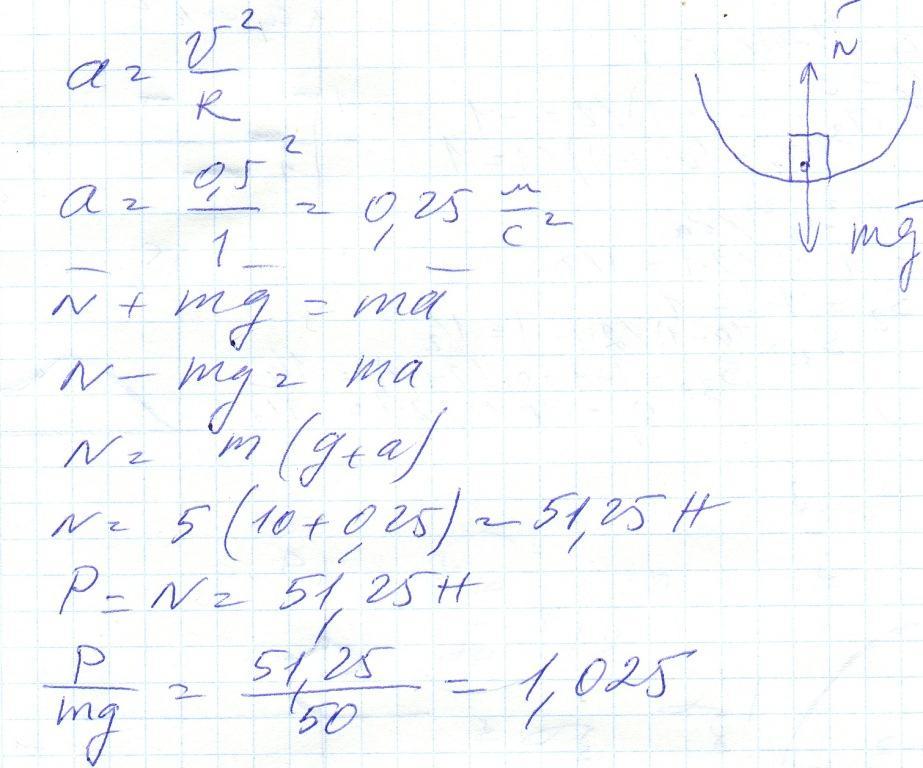 a = v²/R
N̅
a = 0,5²/1 = 0,25 м/с²
mg̅
N̅ + mg̅ = ma̅
N - mg = ma
N = m (g+a)
N = 5 (10+0,25) = 51,25 Н
P = N = 51,25 Н
P/mg = 51,25/50 = 1,025